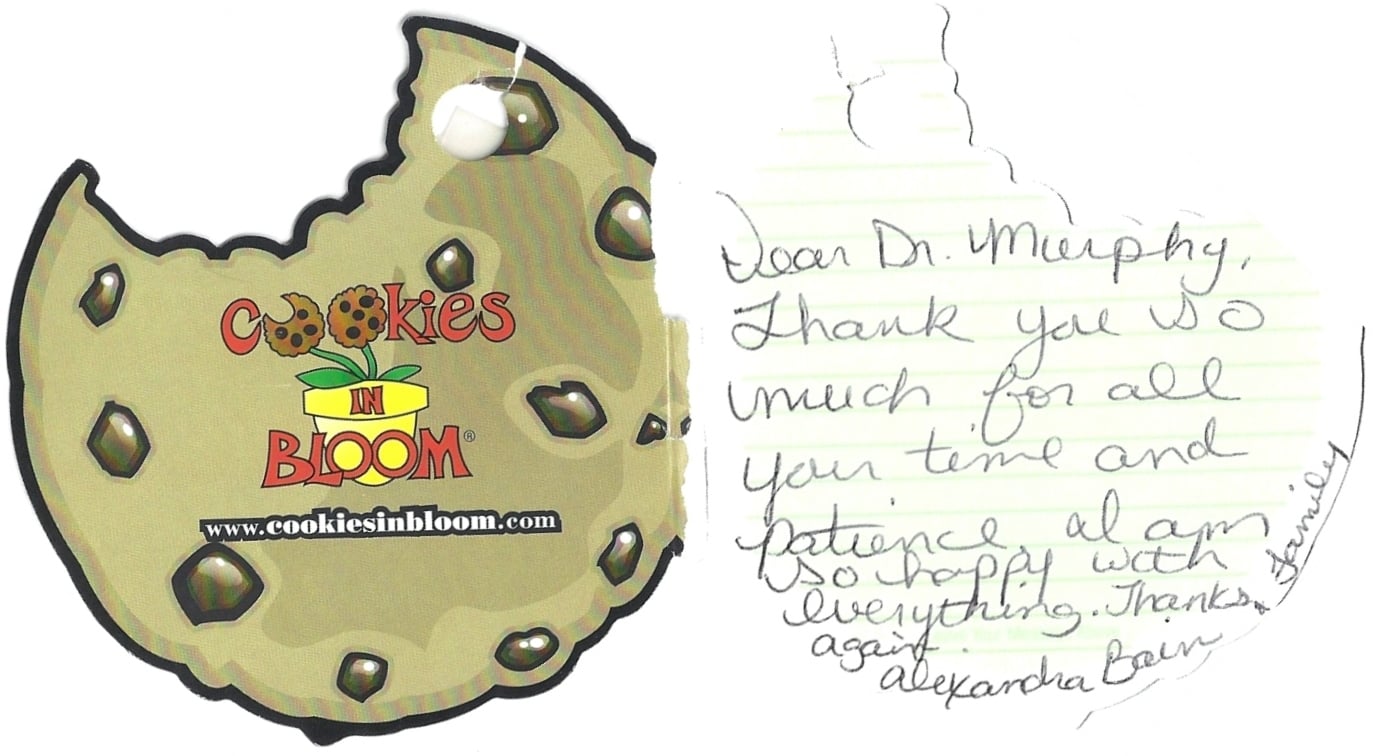 COOKIES
IN
BLOOM®
www.cookiesinbloom.com
Dear Dr. Murphy,
Thank you so
much for all
your time and
patience. I am
so happy with
everything. Thanks
again.
Alexandra Bain
& Family